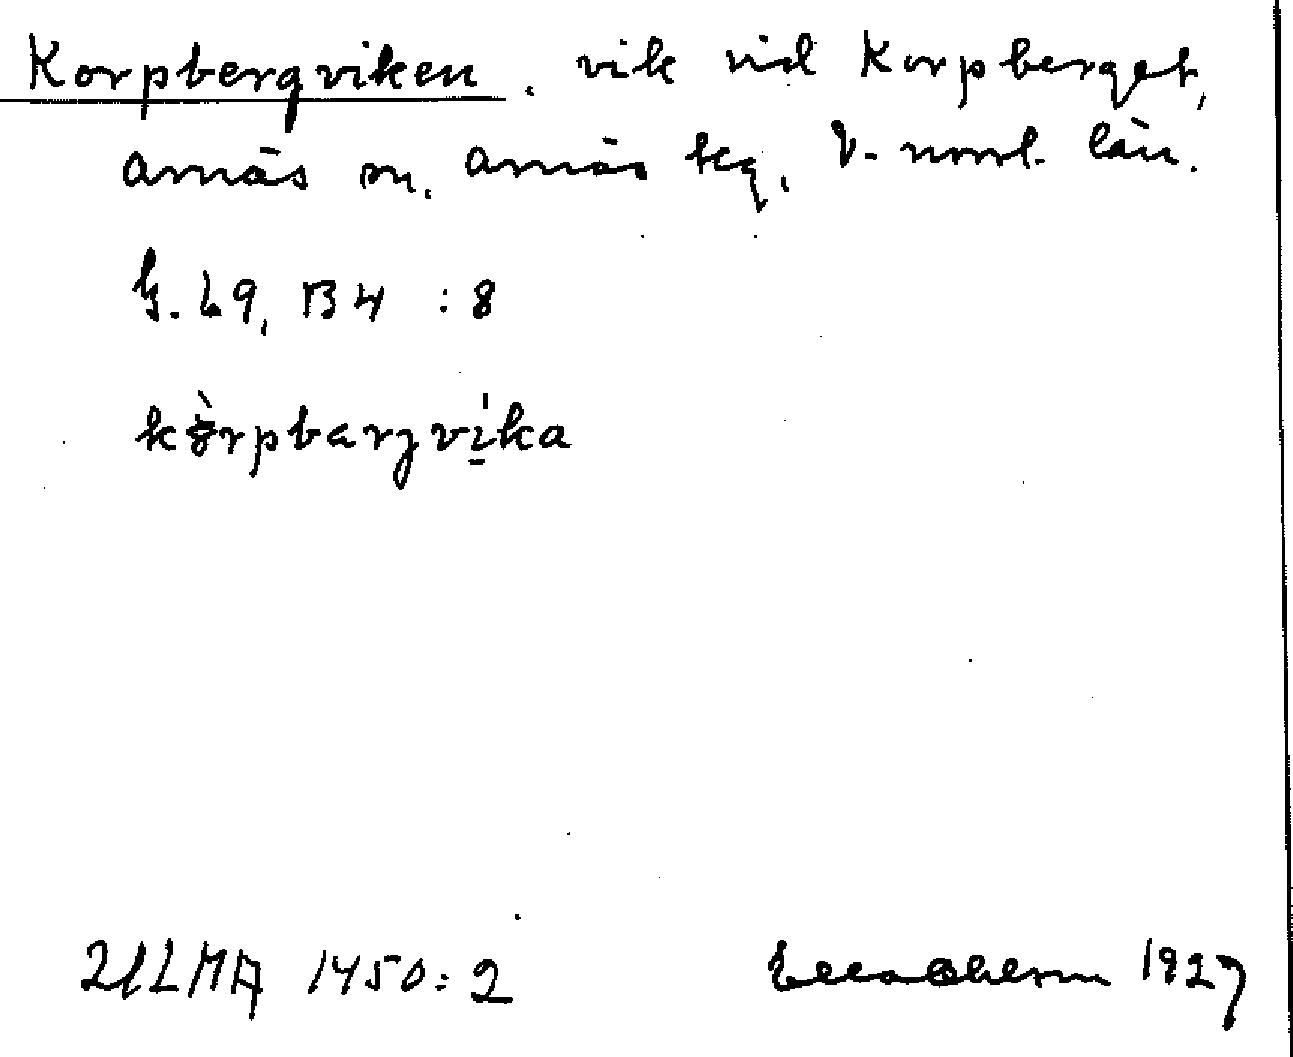 Korpbergviken, vik vid Korpberget,
Arnäs sn. Arnäs tg, V-norrl. län.
G. 69, B4 : 8
kòrpbarjvika
ULMA 1450:2 1927